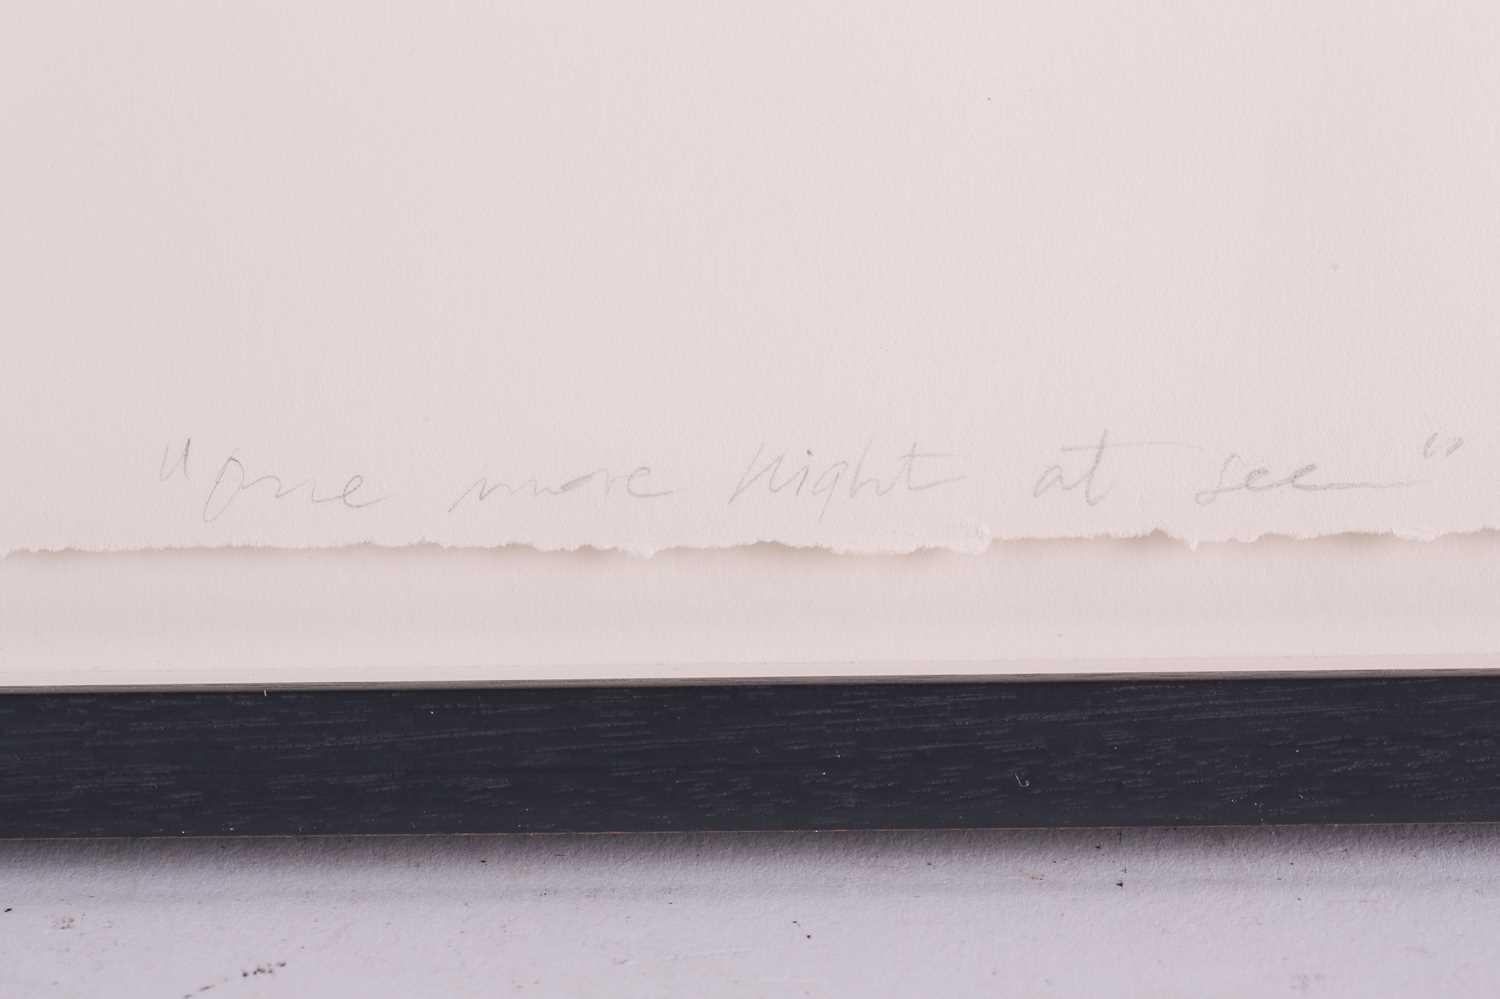 "One more Night at see"